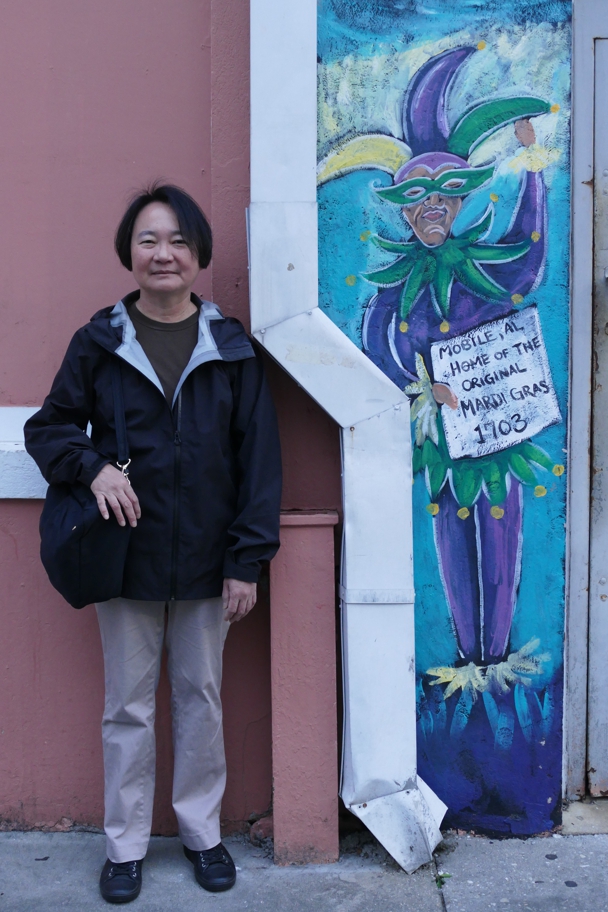 MOBILE, AL
HOME OF THE
ORIGINAL
MARDI GRAS
1703